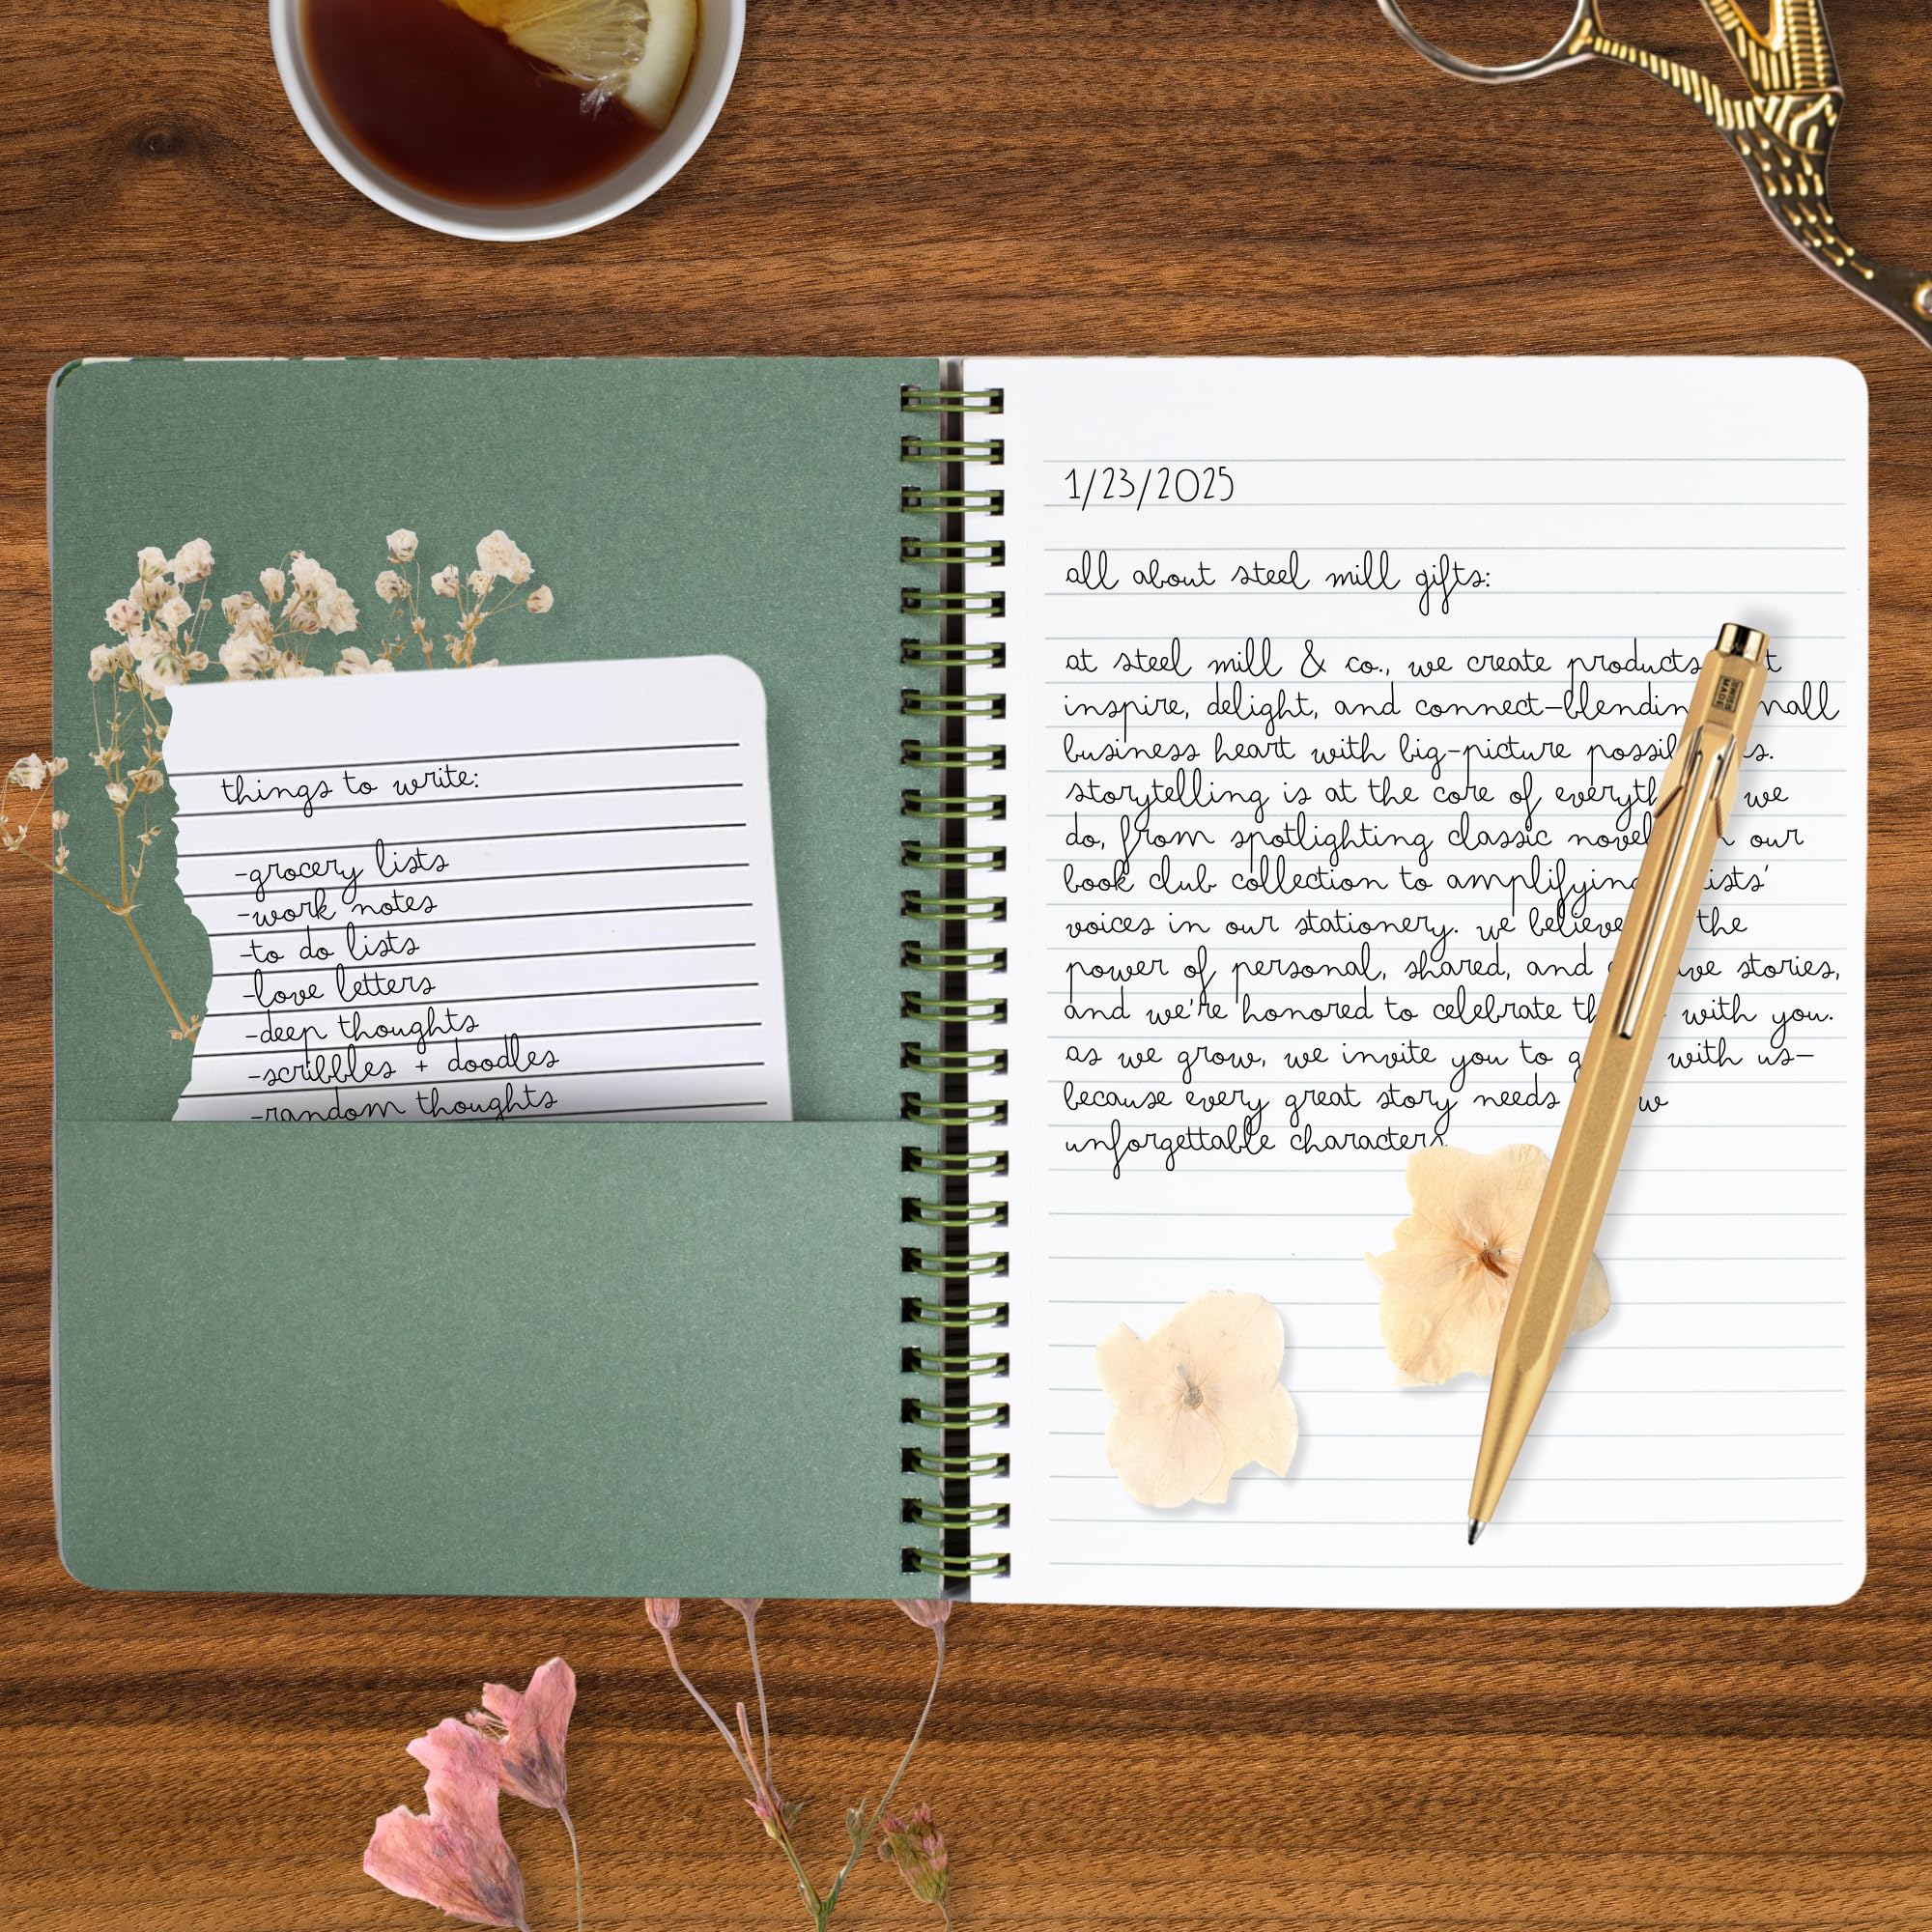 things to write:
-grocery lists
-work notes
-to do lists
-love letters
-deep thoughts
-scribbles + doodles
-random thoughts
1/23/2025
all about steel mill gifts:
at steel mill & co., we create products
inspire, delight, and connect—blending
business heart with big-picture
storytelling is at the core of we
do, from spotlighting classic our
book club collection to amplifying
voices in our stationery. we believe the
power of personal, shared, and stories,
and we're honored to celebrate with you.
as we grow, we invite you to with us—
because every great story needs
unforgettable characters
SWISS
MADE